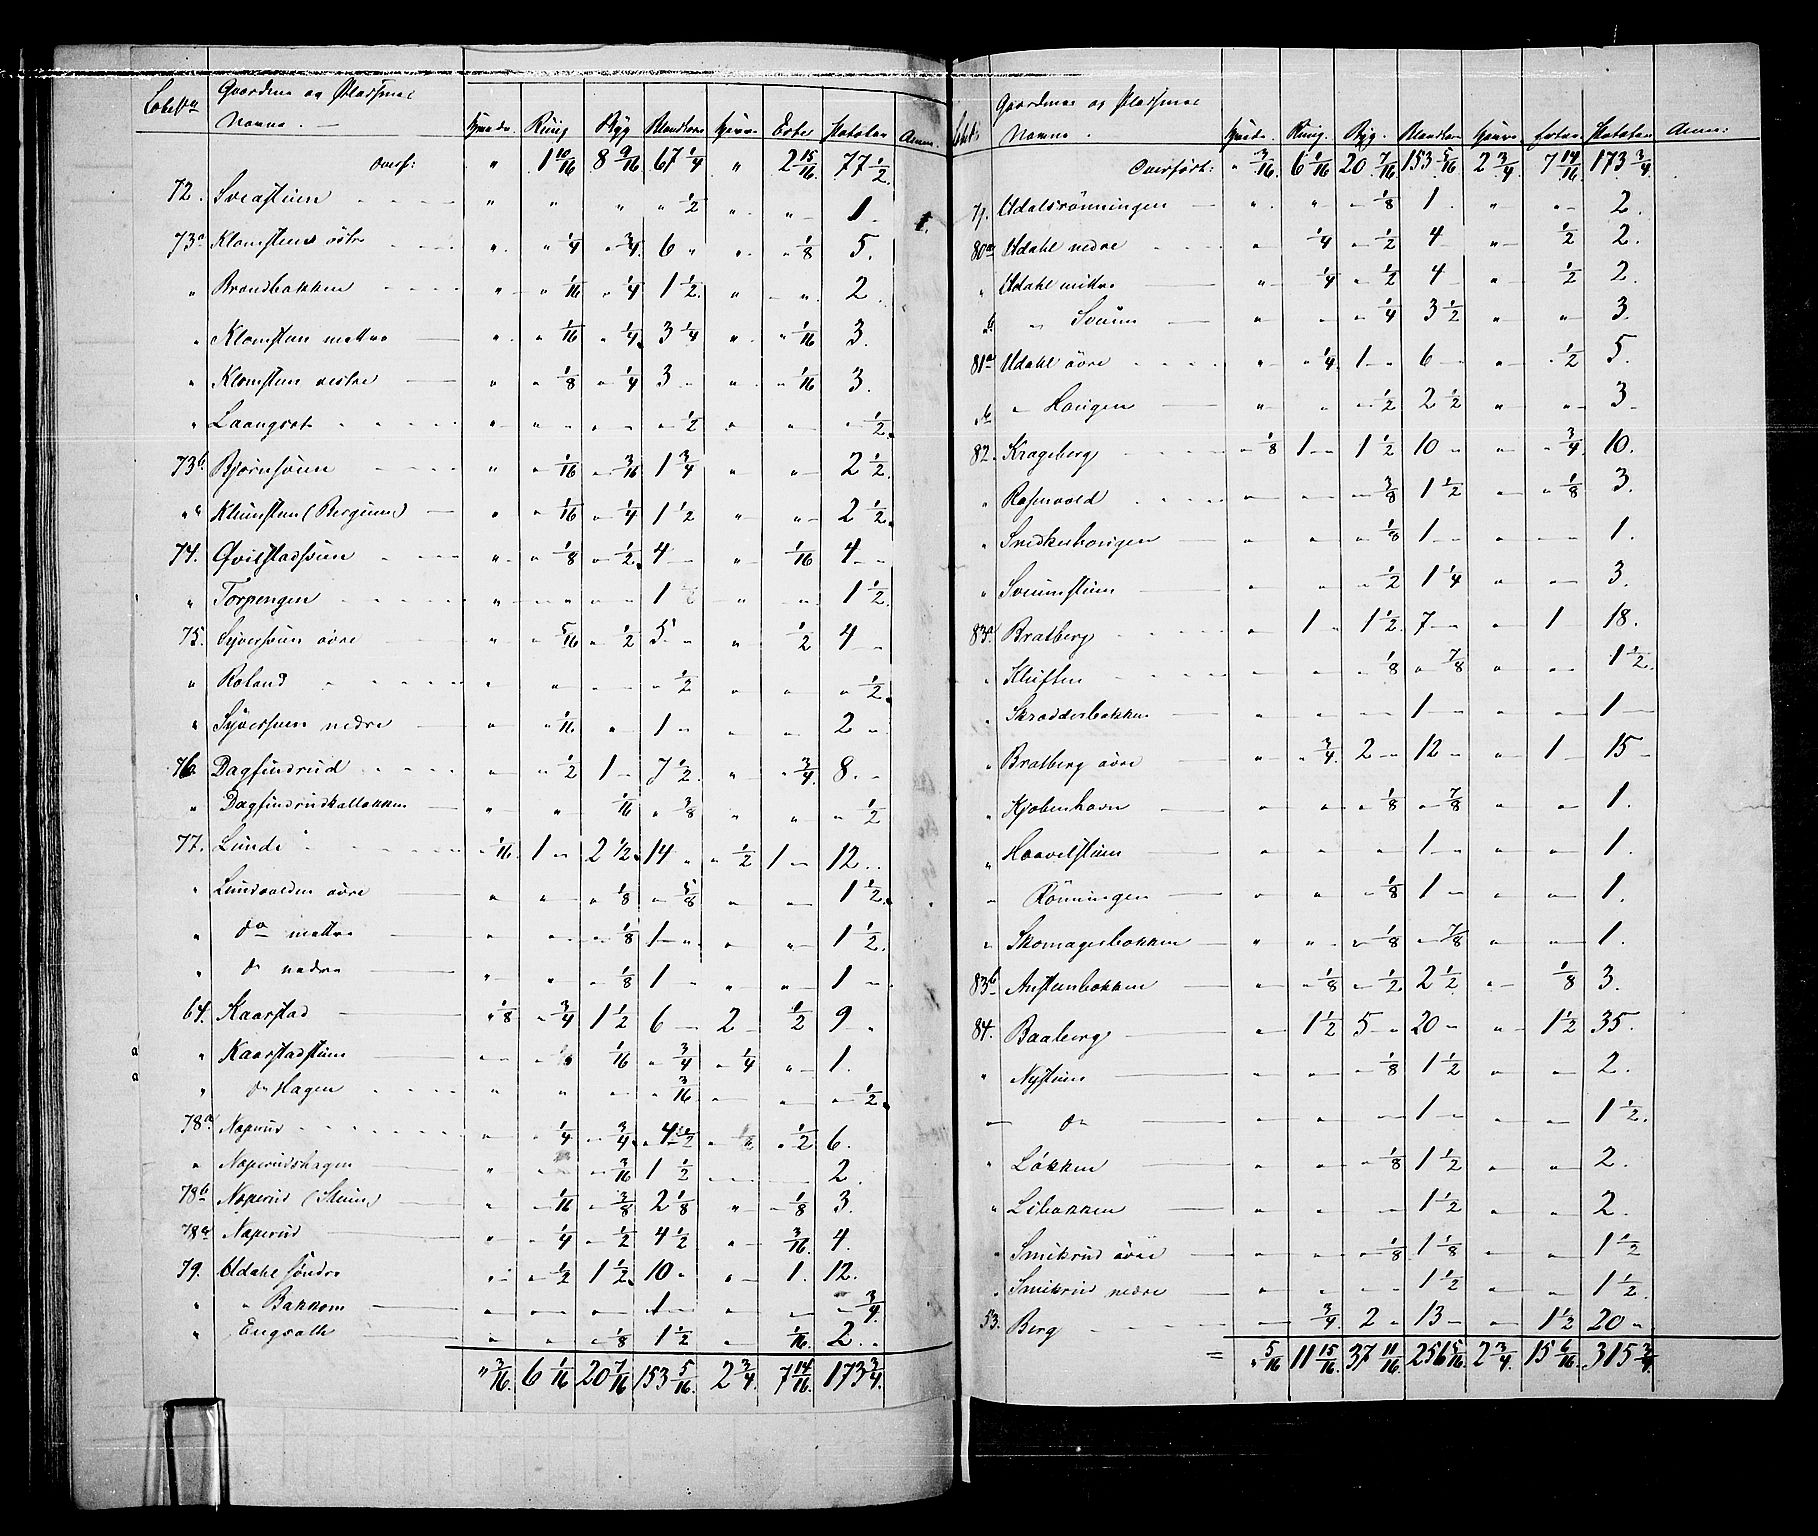 Gaardenes og Pladsenes
Navne. Hvede. Rug Byg Blandkorn Havre Erter Poteter Anm.
Overf: " 1 10/16 8 9/16 67 1/4 " 2 15/16 77 1/2
72. Sveastuen " " " " 1/2 " " 1
73a Klomsten østre " " 1/4 " 3/4 6 " " " 1/8 5
" Brændbakken " " 1/16 " 1/4 1 1/2 " " 2
" Klomsten mettre " " 1/16 " 1/4 3 1/4 " " 1/16 3
" Klomsten vestre " " 1/8 " 1/4 3 " " " 1/16 3
" Laangset " " " " 1/2 " " " 1/2
73b Bjørnsveen " " 1/16 " 3/16 1 3/4 " " 2 1/2
" Klemsten (Bergum) " " 1/16 " 1/4 1 1/2 " " 2 1/2
74. Qvilstadsveen " " 1/8 " 1/2 4 " " 1/16 4
" Torpengen " " " 1 " " 1 1/2
75. Syversveen øvre " " 5/16 " 1/2 5 " " 1/2 4
" Roland " " " " 1/2 " " " 1/2
" Syversveen nedre " " 1/16 " 1 " " " 2
76. Dagfindrud " " 1/2 1 7 1/2 " " 3/4 8
" Dagfindrudkalbakken " " 1/16 " 3/8 " " " 1/2
77. Lunde " 1/16 1 " 2 1/2 14 " " 1/2 1 " 12
" Lundvolden øvre " " " 1/8 " 5/8 " " 1 1/2
" do mettre " " " 1/8 1 " " " 1 1/2
" do nedre " " " 1/8 1 " " 1
64. Kaarstad " 1/8 " 3/4 1 1/2 6 2 1/2 9
" Kaarstadstuen " " 1/16 " 3/4 " 1/4 " 1
" do Hagen " " " " 3/16 " " " 1/2
78a Noperud " " 1/4 " 3/4 4 1/2 " " 1/2 6
" Noperudshagen " " " 3/16 1 1/2 " " 2
78b Noperud (Stuen) " " 1/16 " 3/8 2 1/8 " " 1/8 3
78a Noperud " " 1/4 " 1/2 4 1/2 " " 3/16 4
79. Udahl søndre " " 1/2 1 1/2 10 " " 1 12
" " Bakkom " " " 1 " " " 3/4
" Engsæth " " " 1/8 1 1/2 " 1/16 2
" 3/16 6 1/16 20 7/16 153 5/16 2 3/4 7 14/16 173 3/4
Gaardenes og Pladsenes
Navne. Hvede. Rug. Byg. Blandkorn Havre Erter Poteter Anm:
Overført: " 3/16 6 1/16 20 7/16 153 5/16 2 3/4 7 14/16 173 3/4
71. Udalsrønningen " " " 1/8 1 " " 2
80a Udahl nedre " 1/4 " 1/2 4 " 1/2 2
" Udahl mittre " 1/4 " 1/2 4 " 1/2 2
" " Sveen " " " 1/4 3 1/2 " " 3
81a Udahl øvre " " 1/4 1 " 6 " " 1/2 5
" Haugen " " " 1/2 2 1/2 " " 3
82. Krageberg " 1/8 1 1 1/2 10 " " " 3/4 10
" Rosenvold " " " 3/8 1 1/2 " " 1/8 3
" Snedkerhaugen " " " 1/8 1 " " " 1
" Sveumstuen " " " 1/2 1 1/4 " " 3
83a Bratberg " 1 " 1 1/2 7 " " 1 18
" Kluften " " " 1/8 " 7/8 " " 1 1/2
" Skrædderbakken " " " 1 " " " 1
" Bratberg øvre " " 3/4 2 " 12 " " 1 15
" Kjøbenhavn " " " 1/8 " 7/8 " " 1
" Haavelstuen " " " 1 " " " 1
" Rønningen " " " 1/8 1 " " " 1
" Skomagerbakken " " " 1/8 " 7/8 " " 1
83b Austenbakken " " 1/8 " 1/2 2 1/2 " 1/8 3
84. Baaberg " 1 1/2 5 " 20 " " 1 1/2 35
" Nystuen " " " 1/8 1 1/2 " " 2
" do " " " 1 " " " 1 1/2
" Løkken " " " 1/8 1 1/2 " " 2
" Libakken " " " 1 1/2 " " 2
" Smikrud øvre " " " 1/8 1 1/8 " " 1 1/2
" Smikrud nedre " " " 1 1/2 " " 1 1/2
53. Berg " 3/4 2 " 13 " 1 1/2 20 "
= " 5/16 11 15/16 37 11/16 256 5/16 2 3/4 15 6/16 315 3/4